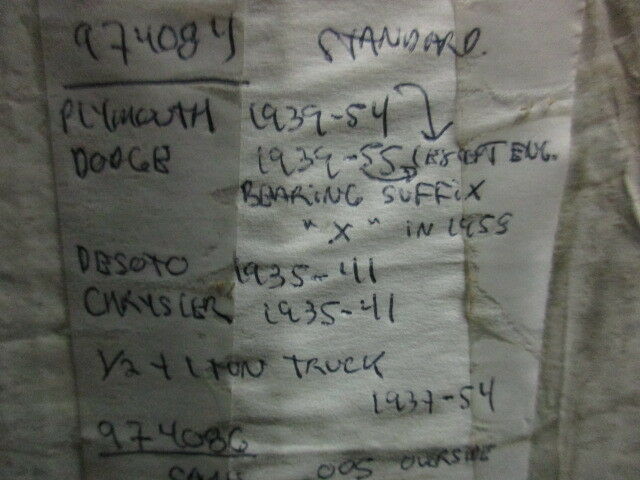 974084 STANDARD
PLYMOUTH 1939-54
DODGE 1939-55 (EXCEPT ENG.
BEARING SUFFIX
"X" IN 1955
DESOTO 1935-41
CHRYSLER 1935-41
1/2 + 1 TON TRUCK
1937-54
974086
SAME .005 OVERSIDE